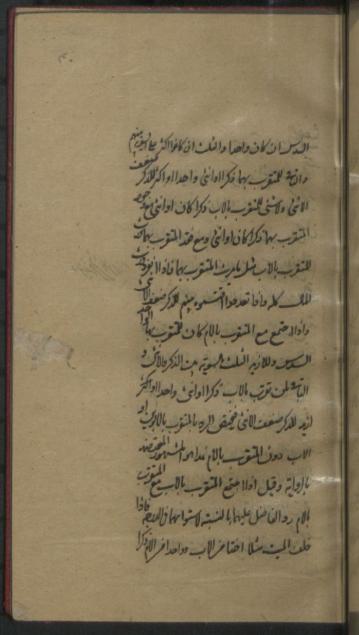 السدس ان كان واحدا والثلث ان كانوا اكثر بالسوية
والباقى للمتقرب بهما ذكرا او انثى واحدا او اكثر للذكر ضعف
الانثى ولا شئ للمتقرب بالاب ذكرا كان او انثى مع وجود
المتقرب بهما ذكرا كان او انثى ومع فقد المتقرب بهما
للمتقرب بالاب مثل ميراث المتقرب بهما فاذا انفرد
المال كله واذا تعددوا اقتسموه بينهم للذكر ضعف الانثى
واذا اجتمع مع المتقرب بالام كان للمتقرب بها
السدس وللازيد الثلث بالسوية بين الذكر والانثى و
الباقى لمن تقرب بالاب ذكرا او انثى واحدا او اكثر
للذكر ضعف الانثى بالمتقرب بالابوين او
الاب دون المتقرب بالام هذا هو المشهور
بالرواية وقيل اذا اجتمع المتقرب بالاب مع المتقرب
بالام رد الفاضل عليهما بالنسبة لاستوائهما فى الدرجة فاذا
خلف الميت مثلا اختا من الاب وواحدا من الام ذكرا